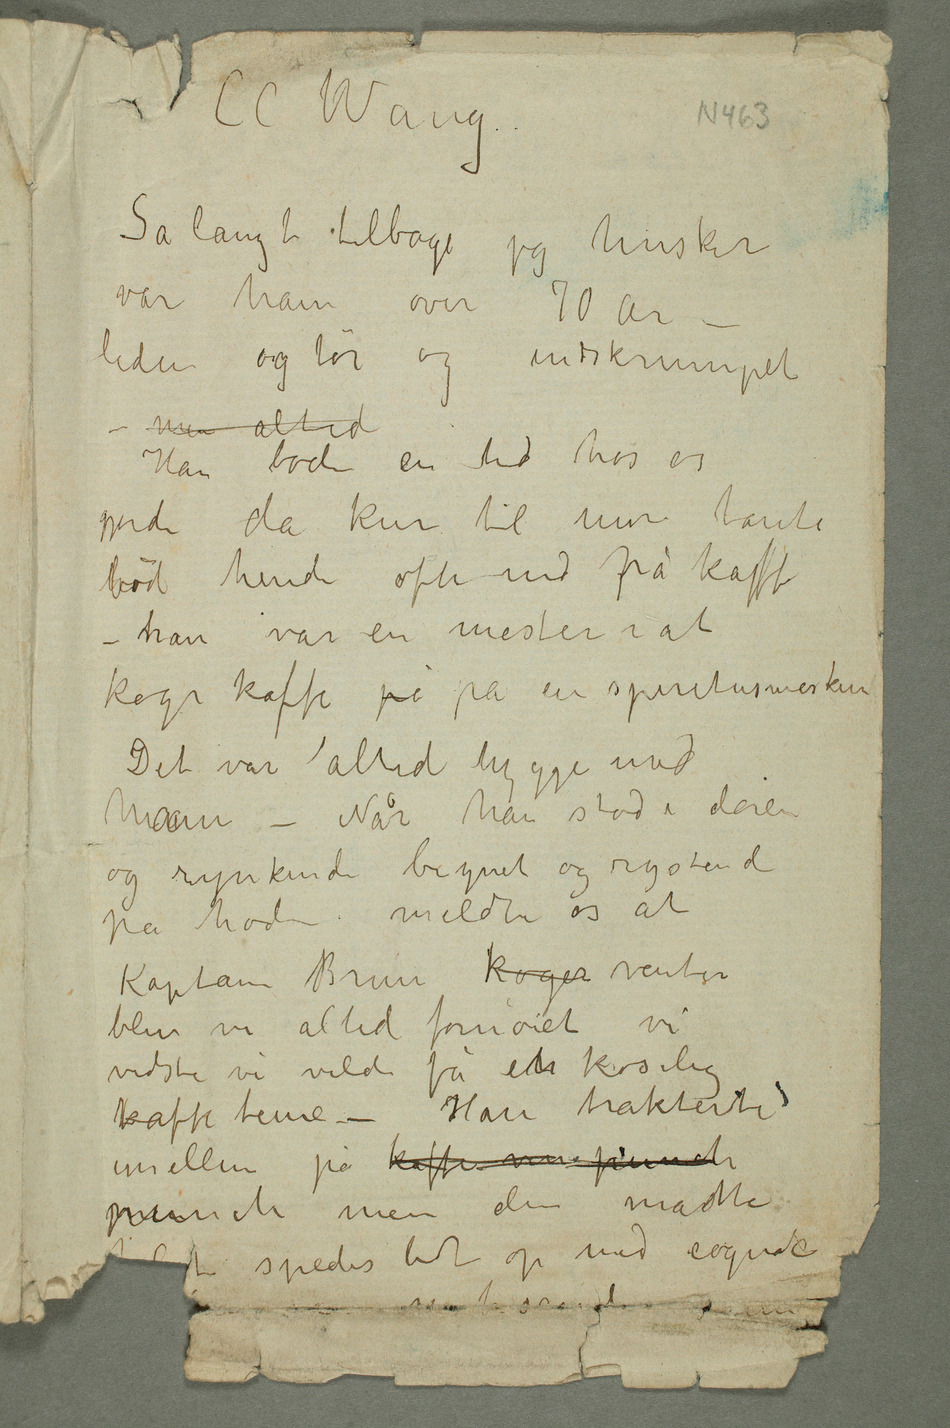 CC Wang.
N463
Sa langt tilbage jeg husker
var han over 70 år –
liden og tör og indskrumpet
– men altid
Han bode en tid hos os
gjorde da kur til min tante
böd hende ofte ind på kaffe
– han var en mester i at
koge kaffe på pa en spiritusmaskin
Det var altid hygge med
ham – Når han stod i dören
og rynkende begynet og rystend
pa hodet meldte os at
Kaptain Brun koger venter
blev vi altid fornöiet vi
vidste vi vilde få en koselig
kaffe teme – Han trakterte
imellem på kaffe men punch
punch men den matte
spedes lidt op med cognac